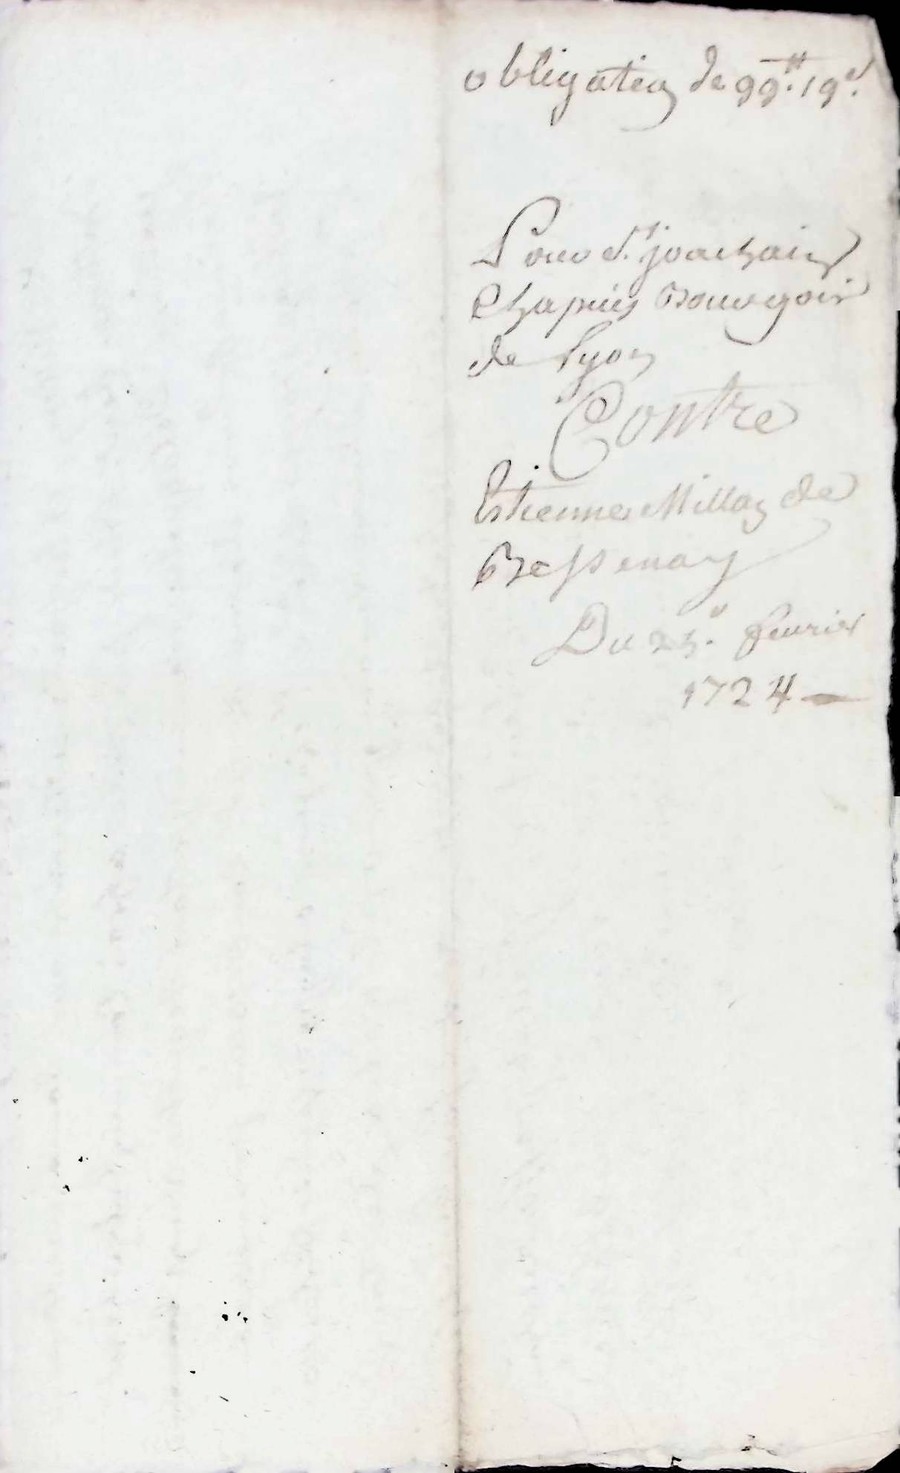 obligation de 99.tt 19.s
Pour Sr. joachain
Chapuis Bourgois
de Lyon
Contre
Estienne Millon de
Bessenay
Du 25.e feurier
1724